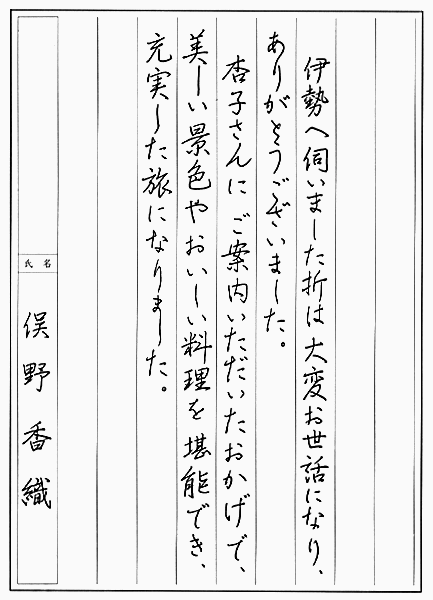 伊勢へ伺いました折は大変お世話になり、
ありがとうございました。
杏子さんにご案内いただいたおかげで、
美しい景色やおいしい料理を堪能でき、
充実した旅になりました。
氏名
俣野香織